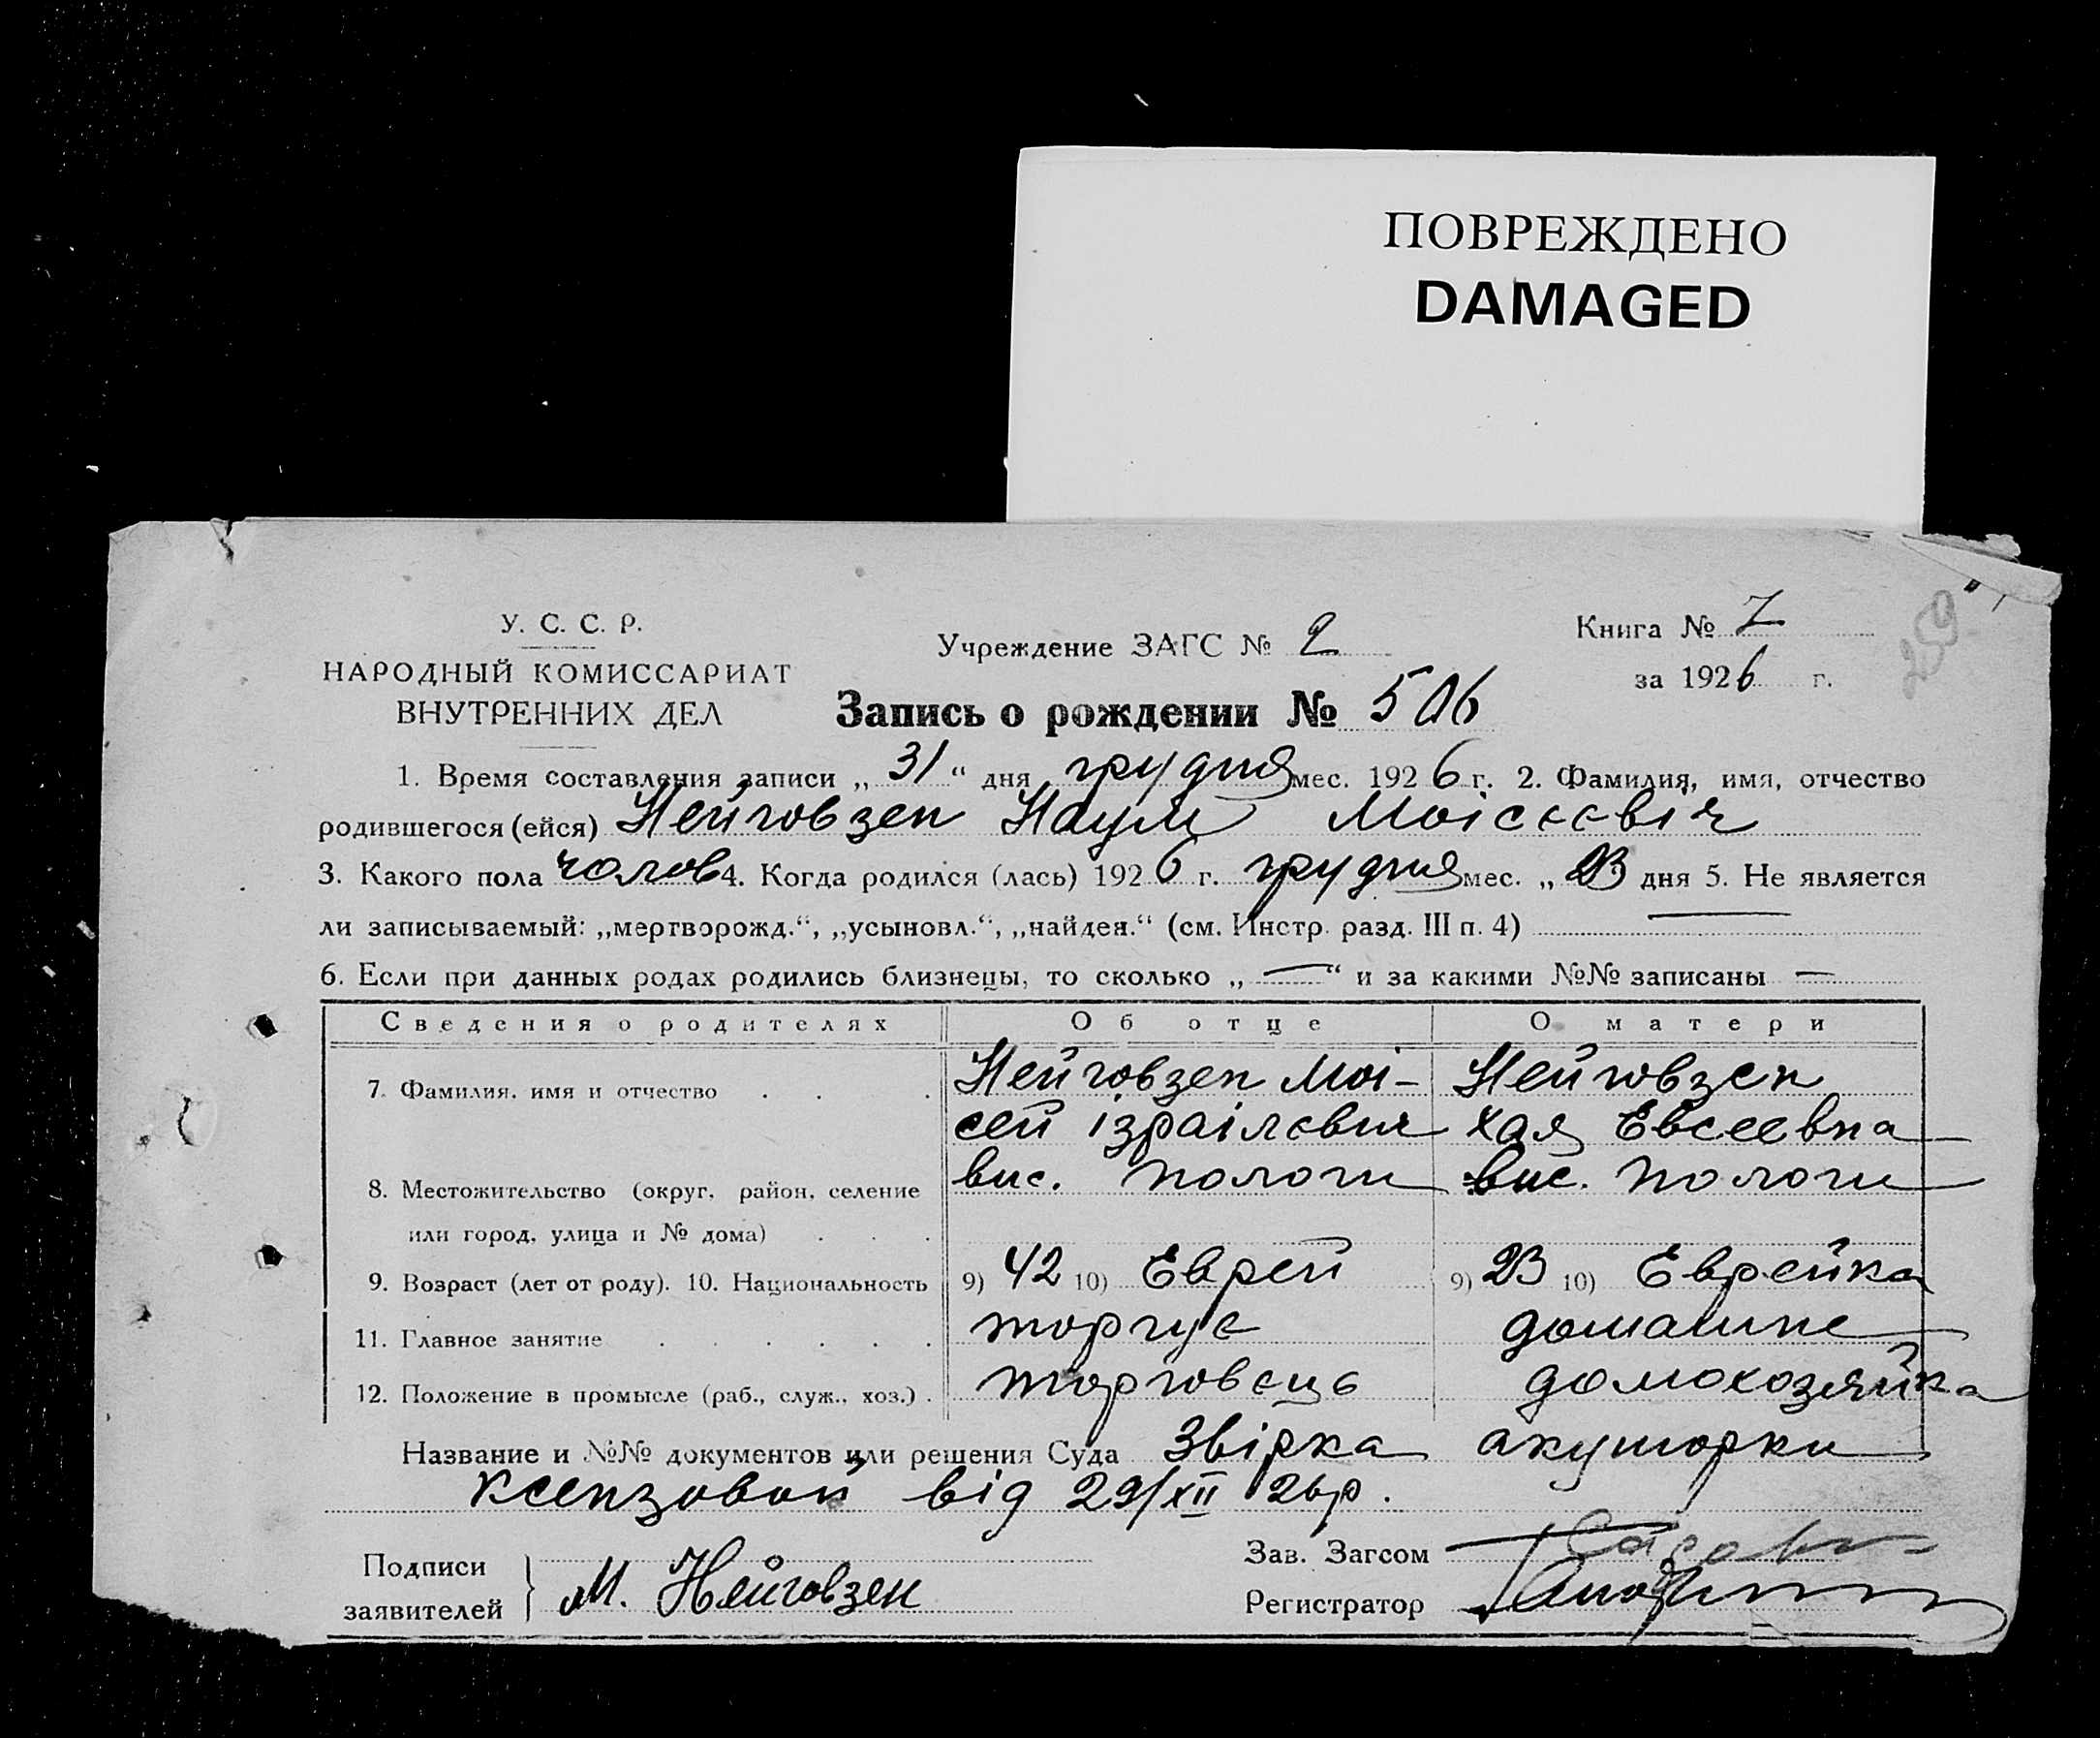 ПОВРЕЖДЕНО
DAMAGED
У. С. С. Р.
НАРОДНЫЙ КОМИССАРИАТ
ВНУТРЕННИХ ДЕЛ
Учреждение ЗАГС № 2
Книга № 7
за 1926 г.
259
Запись о рождении № 506
1. Время составления записи „31“ дня грудня мес. 1926 г. 2. Фамилия, имя, отчество
родившегося (ейся) Нейговзен Наум Моісєєвіч
3. Какого пола чолов 4. Когда родился (лась) 1926 г. грудня мес. „23 дня 5. Не является
ли записываемый: „мертворожд.“, „усыновл.“, „найден.“ (см. Инстр. разд. III п. 4) —
6. Если при данных родах родились близнецы, то сколько „—“ и за какими №№ записаны —
Сведения о родителях Об отце О матери
7. Фамилия, имя и отчество . . . Нейговзен Мої- Нейговзен
сей ізраілєвич Хая Евсеевна
8. Местожительство (округ, район, селение вис. Пологи вис. Пологи
или город, улица и № дома) . . .
9. Возраст (лет от роду). 10. Национальность 9) 42 10) Еврей 9) 23 10) Еврейка
11. Главное занятие . . . . . . торгує домашнє
12. Положение в промысле (раб., служ., хоз.) . торговець домохозяйка
Название и №№ документов или решения Суда Звірка акушорки
Ксензовой від 29/XII 26р.
Подписи
заявителей } М. Нейговзен
Зав. Загсом
Регистратор